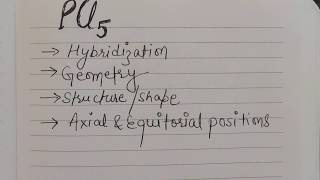 PCl5
→ Hybridization
→ Geometry
→ Structure/shape
→ Axial & Equitorial positions